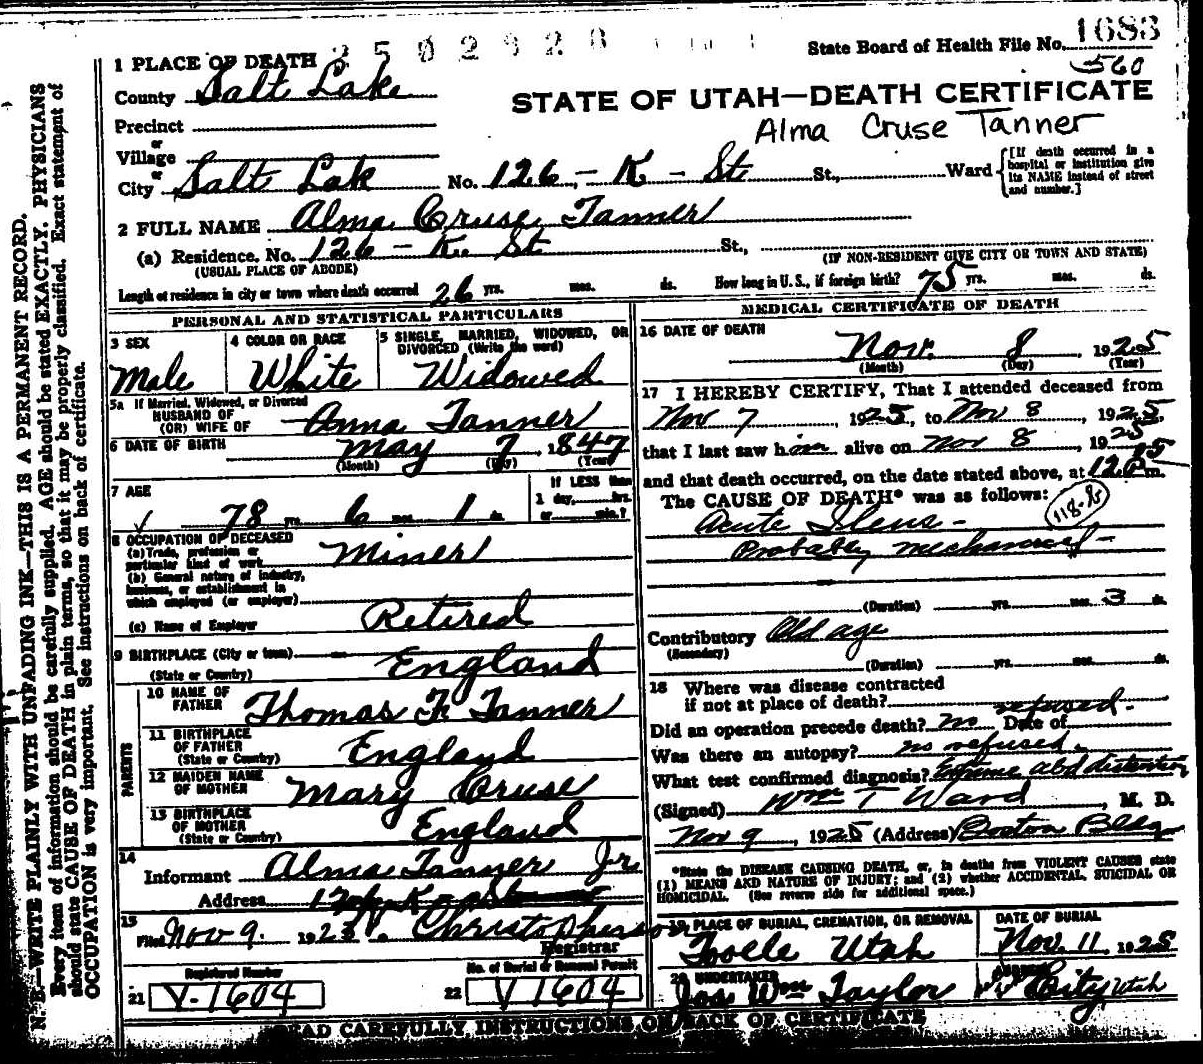 3502928
State Board of Health File No. 1683
560
1 PLACE OF DEATH
County Salt Lake
STATE OF UTAH—DEATH CERTIFICATE
Precinct
Alma Cruse Tanner
or
Village
or
City Salt Lak No. 126 - K - St St., Ward
[If death occurred in a hospital or institution give its NAME instead of street and number.]
2 FULL NAME Alma Cruse Tanner
(a) Residence. No. 126 - K. St St.,
(USUAL PLACE OF ABODE)
(IF NON-RESIDENT GIVE CITY OR TOWN AND STATE)
Length of residence in city or town where death occurred 26 yrs. mos. ds. How long in U. S., if foreign birth? 75 yrs. mos. ds.
PERSONAL AND STATISTICAL PARTICULARS
3 SEX
Male
4 COLOR OR RACE
White
5 SINGLE, MARRIED, WIDOWED, OR DIVORCED (Write the word)
Widowed
5a If Married, Widowed, or Divorced
HUSBAND OF
(OR) WIFE OF
Anna Tanner
6 DATE OF BIRTH May 7, 1847
(Month) (Day) (Year)
7 AGE
78 yrs. 6 mos. 1 ds.
If LESS than
1 day, hrs.
or min.?
8 OCCUPATION OF DECEASED
(a) Trade, profession or
particular kind of work
Miner
(b) General nature of industry,
business, or establishment in
which employed (or employer)
(c) Name of Employer
Retired
9 BIRTHPLACE (City or town)
(State or Country)
England
PARENTS
10 NAME OF
FATHER
Thomas F. Tanner
11 BIRTHPLACE
OF FATHER
(State or Country)
England
12 MAIDEN NAME
OF MOTHER
Mary Cruse
13 BIRTHPLACE
OF MOTHER
(State or Country)
England
14
Informant Alma Tanner Jr
Address 126 K
15
Filed Nov 9. 1925. Christopherson
Registrar
Registered Number
21 V-1604
No. of Burial or Removal Permit
22 V 1604
MEDICAL CERTIFICATE OF DEATH
16 DATE OF DEATH
Nov. 8, 1925
(Month) (Day) (Year)
17 I HEREBY CERTIFY, That I attended deceased from
Nov 7 1925, to Nov 8 1925,
that I last saw him alive on Nov 8, 1925
and that death occurred, on the date stated above, at 12.15 P.m.
The CAUSE OF DEATH* was as follows:
118-B
Acute Ileus -
Probably mechanical -
(Duration) yrs. mos. 3 ds.
Contributory Old age
(Secondary)
(Duration) yrs. mos. ds.
18 Where was disease contracted
if not at place of death?
Did an operation precede death? no refused. Date of
Was there an autopsy? no refused.
What test confirmed diagnosis? Extreme abd distention
(Signed) Wm T Ward, M. D.
Nov 9, 1925 (Address) Boston Bldg
*State the DISEASE CAUSING DEATH, or, in deaths from VIOLENT CAUSES state
(1) MEANS AND NATURE OF INJURY; and (2) whether ACCIDENTAL, SUICIDAL OR
HOMICIDAL. (See reverse side for additional space.)
19 PLACE OF BURIAL, CREMATION, OR REMOVAL
Tooele Utah
DATE OF BURIAL
Nov. 11 1925
20 UNDERTAKER
Jos Wm Taylor
ADDRESS
City Utah
READ CAREFULLY INSTRUCTIONS ON BACK OF CERTIFICATE
N. B.—WRITE PLAINLY WITH UNFADING INK—THIS IS A PERMANENT RECORD.
Every item of information should be carefully supplied. AGE should be stated EXACTLY. PHYSICIANS
should state CAUSE OF DEATH in plain terms, so that it may be properly classified. Exact statement of
OCCUPATION is very important. See instructions on back of certificate.